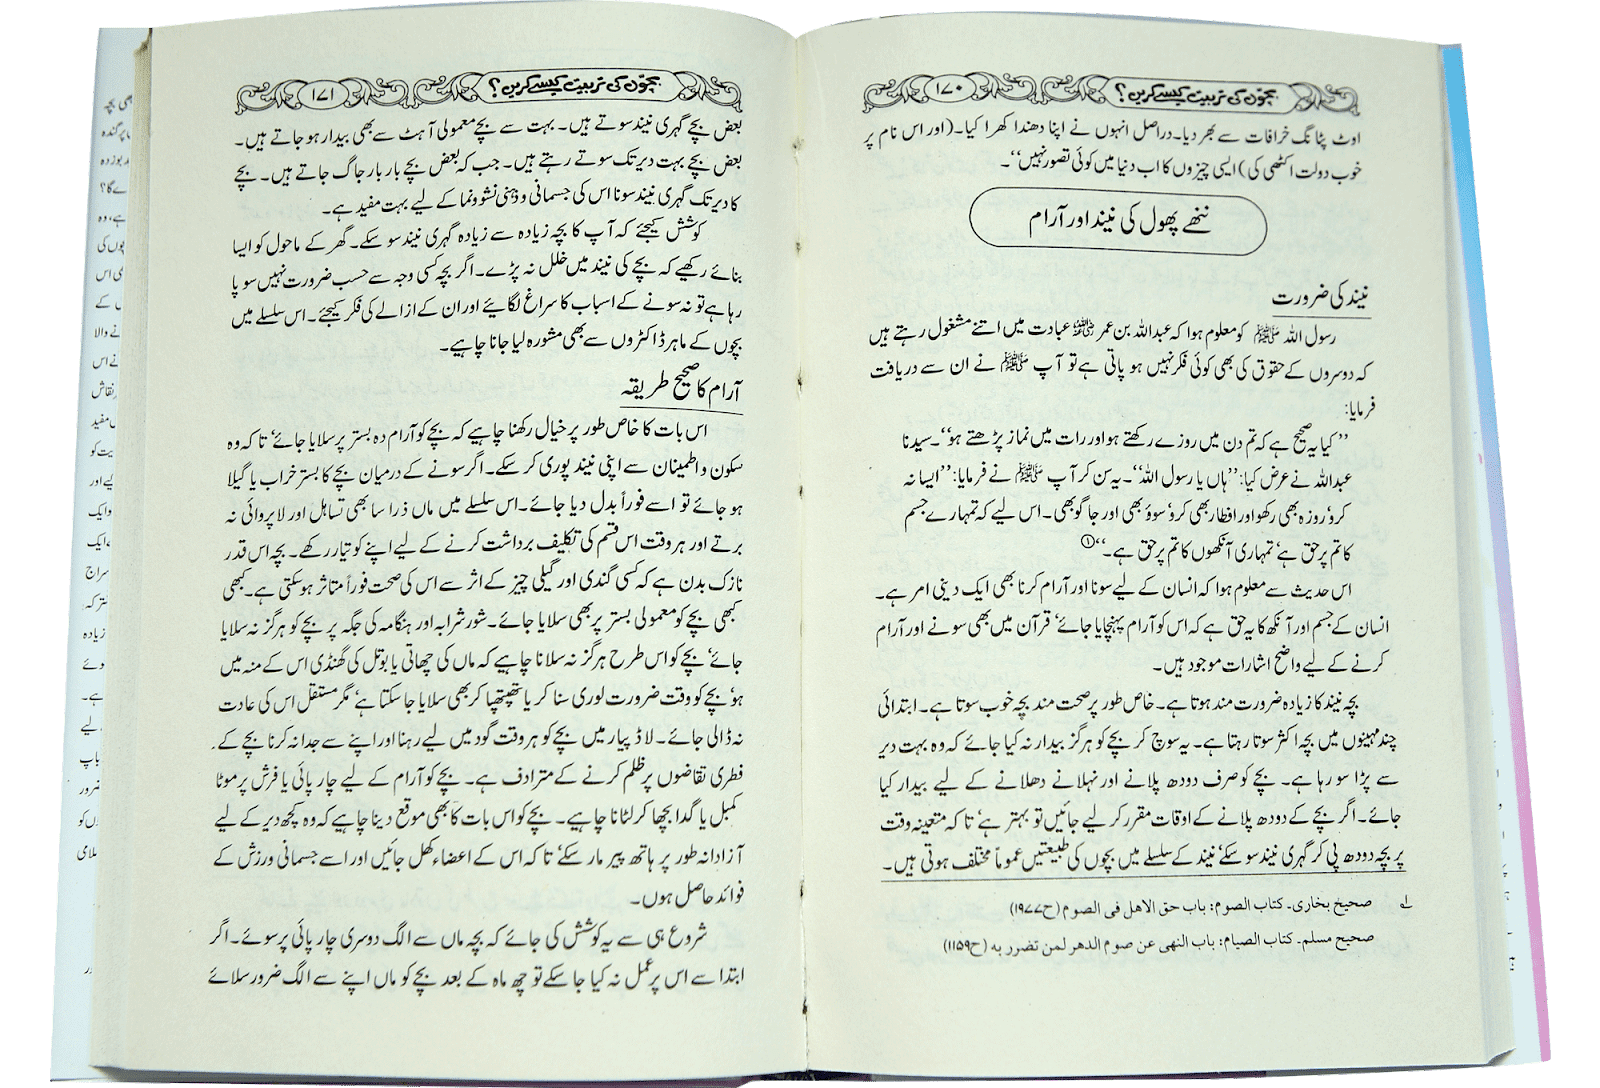 ۱۷۰ بچّوں کی تربیت کیسے کریں؟
اوٹ پٹانگ خرافات سے بھر دیا۔ دراصل انہوں نے اپنا دھندا کھرا کیا۔ (اور اس نام پر
خوب دولت اکٹھی کی) ایسی چیزوں کا اب دنیا میں کوئی تصور نہیں‘‘۔
ننھے پھول کی نیند اور آرام
نیند کی ضرورت
رسول اللہ ﷺ کو معلوم ہوا کہ عبداللہ بن عمر عبادت میں اتنے مشغول رہتے ہیں
کہ دوسروں کے حقوق کی بھی کوئی فکر نہیں ہو پاتی ہے تو آپ ﷺ نے ان سے دریافت
فرمایا:
’’کیا یہ صحیح ہے کہ تم دن میں روزے رکھتے ہو اور رات میں نماز پڑھتے ہو‘‘۔ سیدنا
عبداللہ نے عرض کیا: ’’ہاں یا رسول اللہ‘‘۔ یہ سن کر آپ ﷺ نے فرمایا: ’’ایسا نہ
کرو‘ روزہ بھی رکھو اور افطار بھی کرو‘ سوؤ بھی اور جاگو بھی۔ اس لیے کہ تمہارے جسم
کا تم پر حق ہے‘ تمہاری آنکھوں کا تم پر حق ہے۔‘‘①
اس حدیث سے معلوم ہوا کہ انسان کے لیے سونا اور آرام کرنا بھی ایک دینی امر ہے۔
انسان کے جسم اور آنکھ کا یہ حق ہے کہ اس کو آرام پہنچایا جائے‘ قرآن میں بھی سونے اور آرام
کرنے کے لیے واضح اشارات موجود ہیں۔
بچہ نیند کا زیادہ ضرورت مند ہوتا ہے۔ خاص طور پر صحت مند بچہ خوب سوتا ہے۔ ابتدائی
چند مہینوں میں بچہ اکثر سوتا رہتا ہے۔ یہ سوچ کر بچے کو ہرگز بیدار نہ کیا جائے کہ وہ بہت دیر
سے پڑا سو رہا ہے۔ بچے کو صرف دودھ پلانے اور نہلانے دھلانے کے لیے بیدار کیا
جائے۔ اگر بچے کے دودھ پلانے کے اوقات مقرر کر لیے جائیں تو بہتر ہے‘ تاکہ متعینہ وقت
پر بچہ دودھ پی کر گہری نیند سو سکے‘ نیند کے سلسلے میں بچوں کی طبیعتیں عموماً مختلف ہوتی ہیں۔
۱؎ صحیح بخاری۔ کتاب الصوم: باب حق الاهل فی الصوم (ح۱۹۷۷)
صحیح مسلم۔ کتاب الصیام: باب النهی عن صوم الدهر لمن تضرر به (ح۱۱۵۹)
۱۷۱ بچّوں کی تربیت کیسے کریں؟
بعض بچے گہری نیند سوتے ہیں۔ بہت سے بچے معمولی آہٹ سے بھی بیدار ہو جاتے ہیں۔
بعض بچے بہت دیر تک سوتے رہتے ہیں۔ جب کہ بعض بچے بار بار جاگ جاتے ہیں۔ بچے
کا دیر تک گہری نیند سونا اس کی جسمانی و ذہنی نشوونما کے لیے بہت مفید ہے۔
کوشش کیجئے کہ آپ کا بچہ زیادہ سے زیادہ گہری نیند سو سکے۔ گھر کے ماحول کو ایسا
بنائے رکھیے کہ بچے کی نیند میں خلل نہ پڑے۔ اگر بچہ کسی وجہ سے حسب ضرورت نہیں سو پا
رہا ہے تو نہ سونے کے اسباب کا سراغ لگائیے اور ان کے ازالے کی فکر کیجئے۔ اس سلسلے میں
بچوں کے ماہر ڈاکٹروں سے بھی مشورہ لیا جانا چاہیے۔
آرام کا صحیح طریقہ
اس بات کا خاص طور پر خیال رکھنا چاہیے کہ بچے کو آرام دہ بستر پر سلایا جائے‘ تاکہ وہ
سکون و اطمینان سے اپنی نیند پوری کر سکے۔ اگر سونے کے درمیان بچے کا بستر خراب یا گیلا
ہو جائے تو اسے فوراً بدل دیا جائے۔ اس سلسلے میں ماں ذرا سا بھی تساہل اور لاپروائی نہ
برتے اور ہر وقت اس قسم کی تکلیف برداشت کرنے کے لیے اپنے کو تیار رکھے۔ بچہ اس قدر
نازک بدن ہے کہ کسی گندی اور گیلی چیز کے اثر سے اس کی صحت فوراً متاثر ہو سکتی ہے۔ کبھی
کبھی بچے کو معمولی بستر پر بھی سلایا جائے۔ شور شرابہ اور ہنگامہ کی جگہ پر بچے کو ہرگز نہ سلایا
جائے‘ بچے کو اس طرح ہرگز نہ سلانا چاہیے کہ ماں کی چھاتی یا بوتل کی گھنڈی اس کے منہ میں
ہو‘ بچے کو وقت ضرورت لوری سنا کر یا تھپتھپا کر بھی سلایا جا سکتا ہے‘ مگر مستقل اس کی عادت
نہ ڈالی جائے۔ لاڈ پیار میں بچے کو ہر وقت گود میں لیے رہنا اور اپنے سے جدا نہ کرنا بچے کے
فطری تقاضوں پر ظلم کرنے کے مترادف ہے۔ بچے کو آرام کے لیے چارپائی یا فرش پر موٹا
کمبل یا گدا بچھا کر لٹانا چاہیے۔ بچے کو اس بات کا بھی موقع دینا چاہیے کہ وہ کچھ دیر کے لیے
آزادانہ طور پر ہاتھ پیر مار سکے‘ تاکہ اس کے اعضاء کھل جائیں اور اسے جسمانی ورزش کے
فوائد حاصل ہوں۔
شروع ہی سے یہ کوشش کی جائے کہ بچہ ماں سے الگ دوسری چارپائی پر سوئے۔ اگر
ابتدا سے اس پر عمل نہ کیا جا سکے تو چھ ماہ کے بعد بچے کو ماں اپنے سے الگ ضرور سلائے